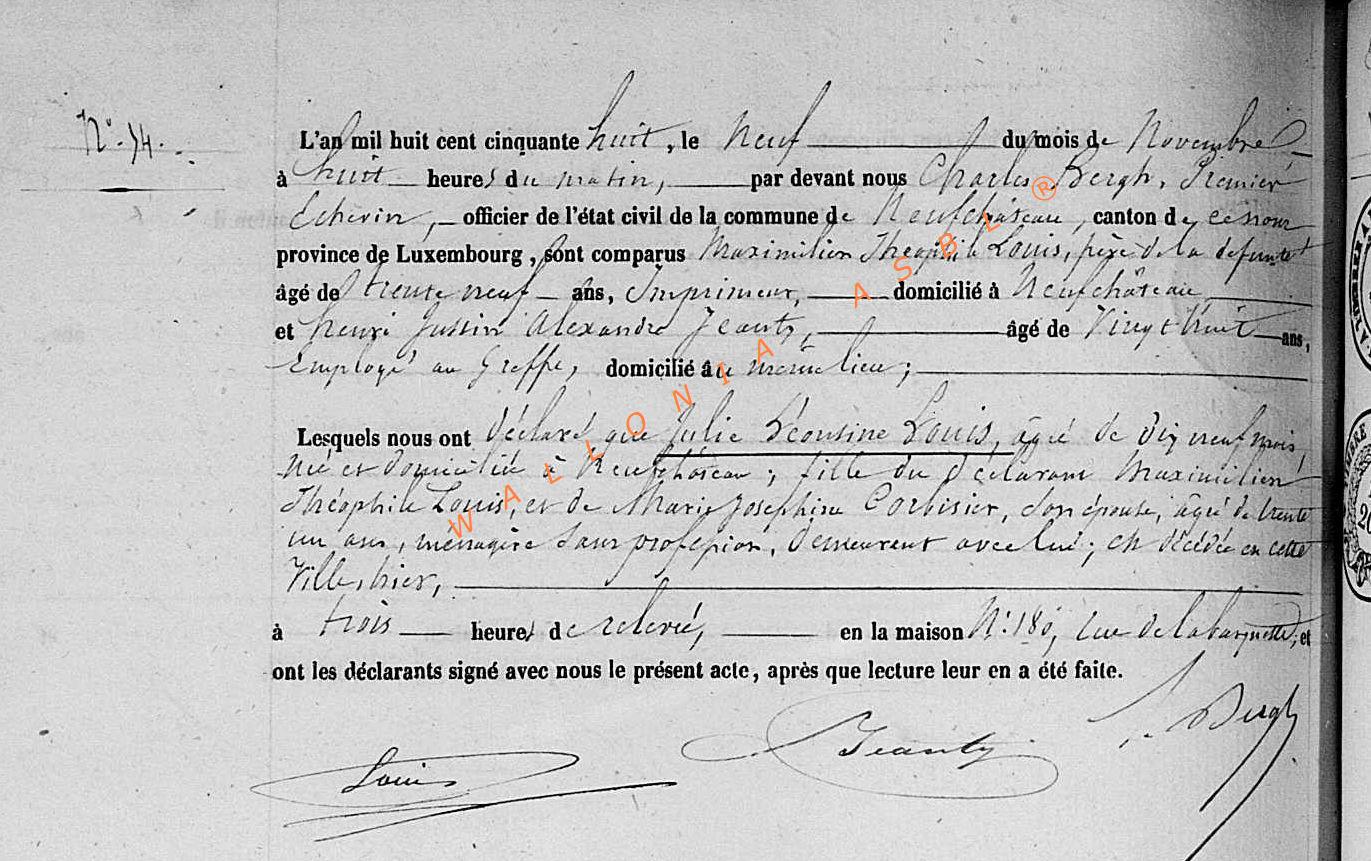 N°. 54.
L'an mil huit cent cinquante huit, le Neuf du mois de Novembre,
à huit heures du matin, par devant nous Charles Bergh, Premier
Echevin, officier de l'état civil de la commune de Neufchâteau, canton de ce nom
province de Luxembourg, sont comparus Maximilien Théophile Louis, père de la défunte
âgé de trente neuf ans, Imprimeur, domicilié à Neufchâteau,
et Henri Justin Alexandre Jeanty, âgé de Vingt huit ans,
Employé au Greffe, domicilié au même lieu;
Lesquels nous ont déclaré que Julie Léontine Louis, âgée de dix neuf mois,
née et domiciliée à Neufchâteau; fille du déclarant Maximilien
Théophile Louis, et de Marie Josephine Corbisier, son épouse, âgée de trente
un ans, ménagère sans profession, demeurent avec lui; est décédée en cette
Ville, hier,
à trois heures de relevée, en la maison N°. 180, rue de la barquette, et
ont les déclarants signé avec nous le présent acte, après que lecture leur en a été faite.
Bergh
Jeanty
Louis
WALLONIA ASBL ®